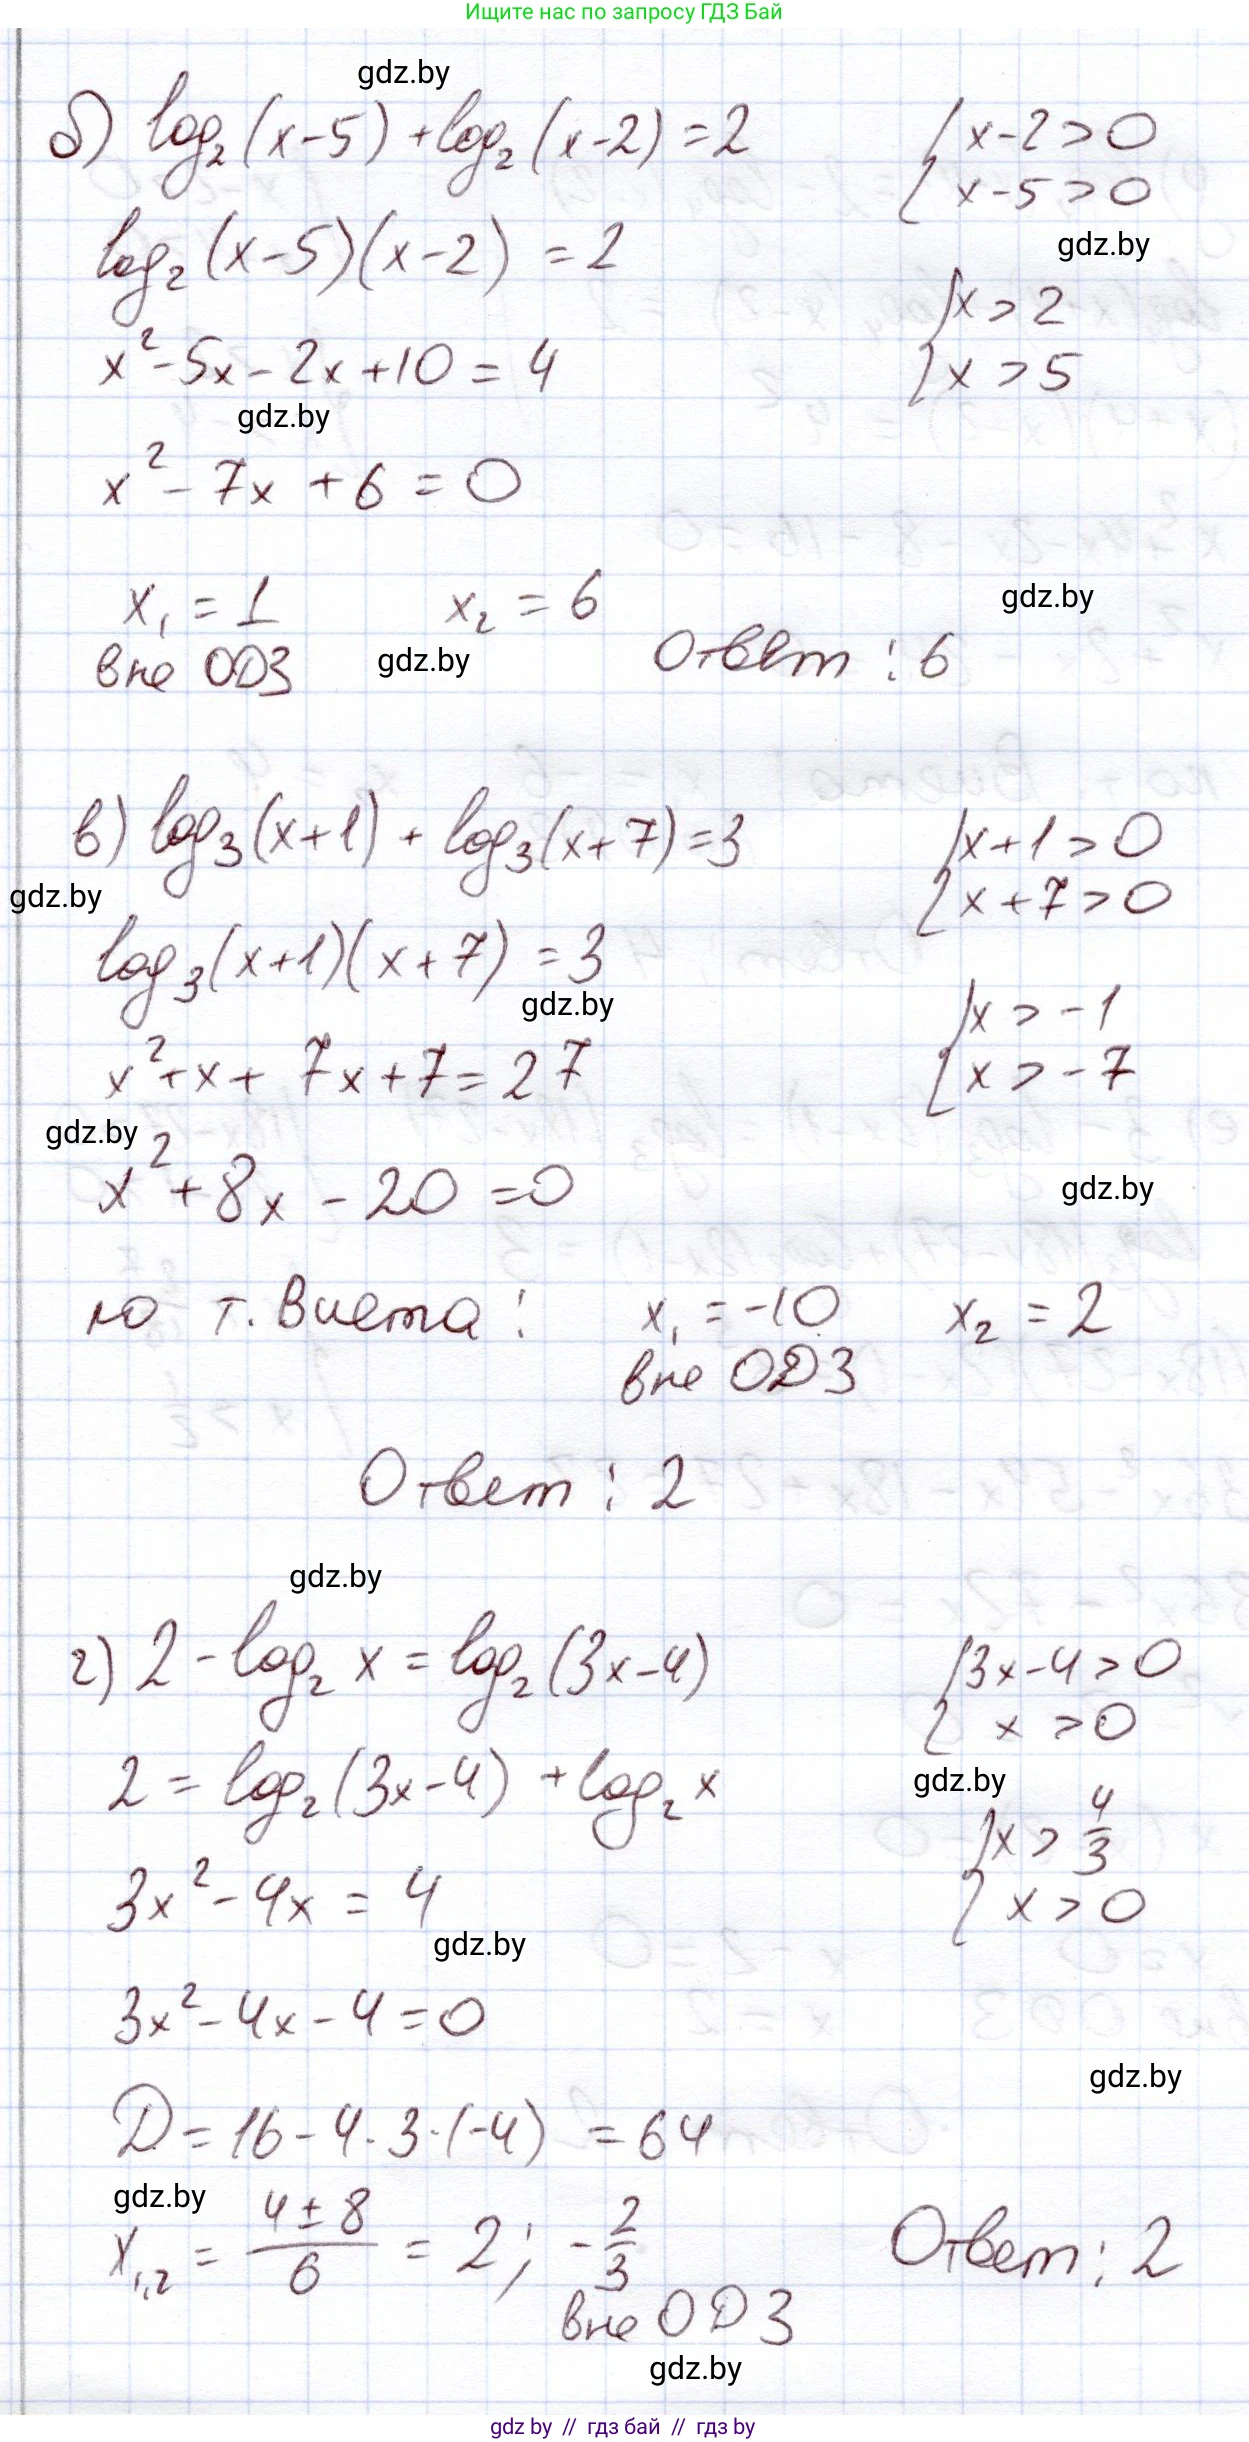 Ищите нас по запросу ГДЗ Бай
gdz.by
б) log₂(x-5) + log₂(x-2) = 2
{ x-2 > 0
{ x-5 > 0
gdz.by
log₂(x-5)(x-2) = 2
{ x > 2
{ x > 5
x² - 5x - 2x + 10 = 4
gdz.by
x² - 7x + 6 = 0
x₁ = 1 x₂ = 6
gdz.by
вне ОДЗ
gdz.by
Ответ: 6
в) log₃(x+1) + log₃(x+7) = 3
{ x+1 > 0
{ x+7 > 0
gdz.by
log₃(x+1)(x+7) = 3
gdz.by
{ x > -1
{ x > -7
x² + x + 7x + 7 = 27
gdz.by
x² + 8x - 20 = 0
gdz.by
по т. Виета: x₁ = -10 x₂ = 2
вне ОДЗ
Ответ: 2
gdz.by
г) 2 - log₂ x = log₂(3x-4)
{ 3x-4 > 0
{ x > 0
gdz.by
2 = log₂(3x-4) + log₂ x
{ x > 4/3
{ x > 0
3x² - 4x = 4
gdz.by
3x² - 4x - 4 = 0
gdz.by
D = 16 - 4·3·(-4) = 64
gdz.by
x₁,₂ = (4 ± 8)/6 = 2; -2/3
вне ОДЗ
Ответ: 2
gdz.by
gdz by // гдз бай // гдз by